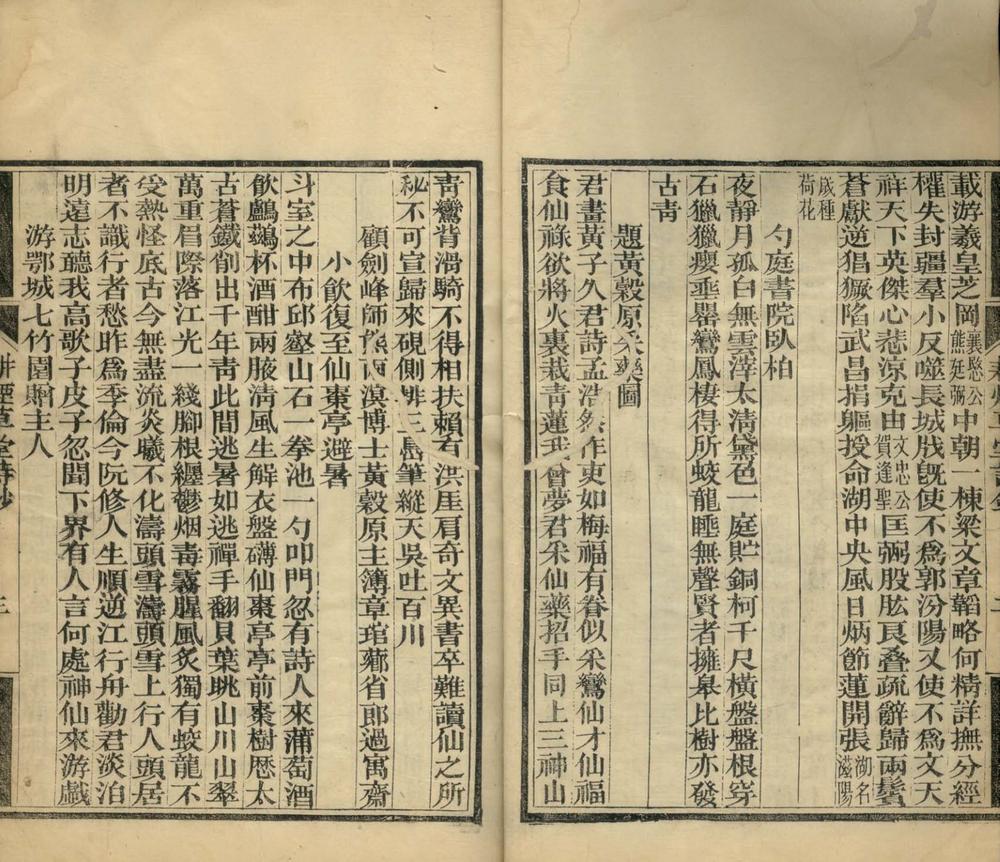 載游羲皇芝岡襄愍公熊廷弼中朝一棟梁文章韜略何精詳撫分經
權失封疆羣小反噬長城戕旣使不爲郭汾陽又使不爲文天
祥天下英傑心悲涼克由文忠公賀逢聖匡弼股肱良叠疏辭歸兩鬢
蒼獻逆猖獗陷武昌捐軀授命湖中央風日炳節蓮開張湖名滋陽
歲種荷花
勺庭書院臥柏
夜靜月孤白無雲滓太淸黛色一庭貯銅柯千尺橫盤盤根穿
石獵獵癭垂罌鸞鳳棲得所蛟龍睡無聲賢者擁皋比樹亦發
古靑
題黃穀原采藥圖
君畫黃子久君詩孟浩然作吏如梅福有眷似采鸞仙才仙福
食仙祿欲將火裏栽靑蓮我曾夢君采仙藥招手同上三神山
靑鸞背滑騎不得相扶賴有洪厓肩奇文異書卒難讀仙之所
秘不可宣歸來硯側排三島筆縱天吳吐百川
顧劍峰師陳西溟博士黃穀原主簿章琯薌省郎過寓齋
小飲復至仙棗亭避暑
斗室之中布邱壑山石一拳池一勺叩門忽有詩人來蒲萄酒
飲鸕鶿杯酒酣兩腋淸風生解衣盤礴仙棗亭亭前棗樹歷太
古蒼鐵削出千年靑此間逃暑如逃禪手翻貝葉眺山川山翠
萬重眉際落江光一綫腳根纒鬱烟毒霧腥風炙獨有蛟龍不
受熱怪底古今無盡流炎曦不化濤頭雪濤頭雪上行人頭居
者不識行者愁昨爲季倫今阮修人生順逆江行舟勸君淡泊
明遠志聽我高歌子皮子忽聞下界有人言何處神仙來游戲
游鄂城七竹園贈主人